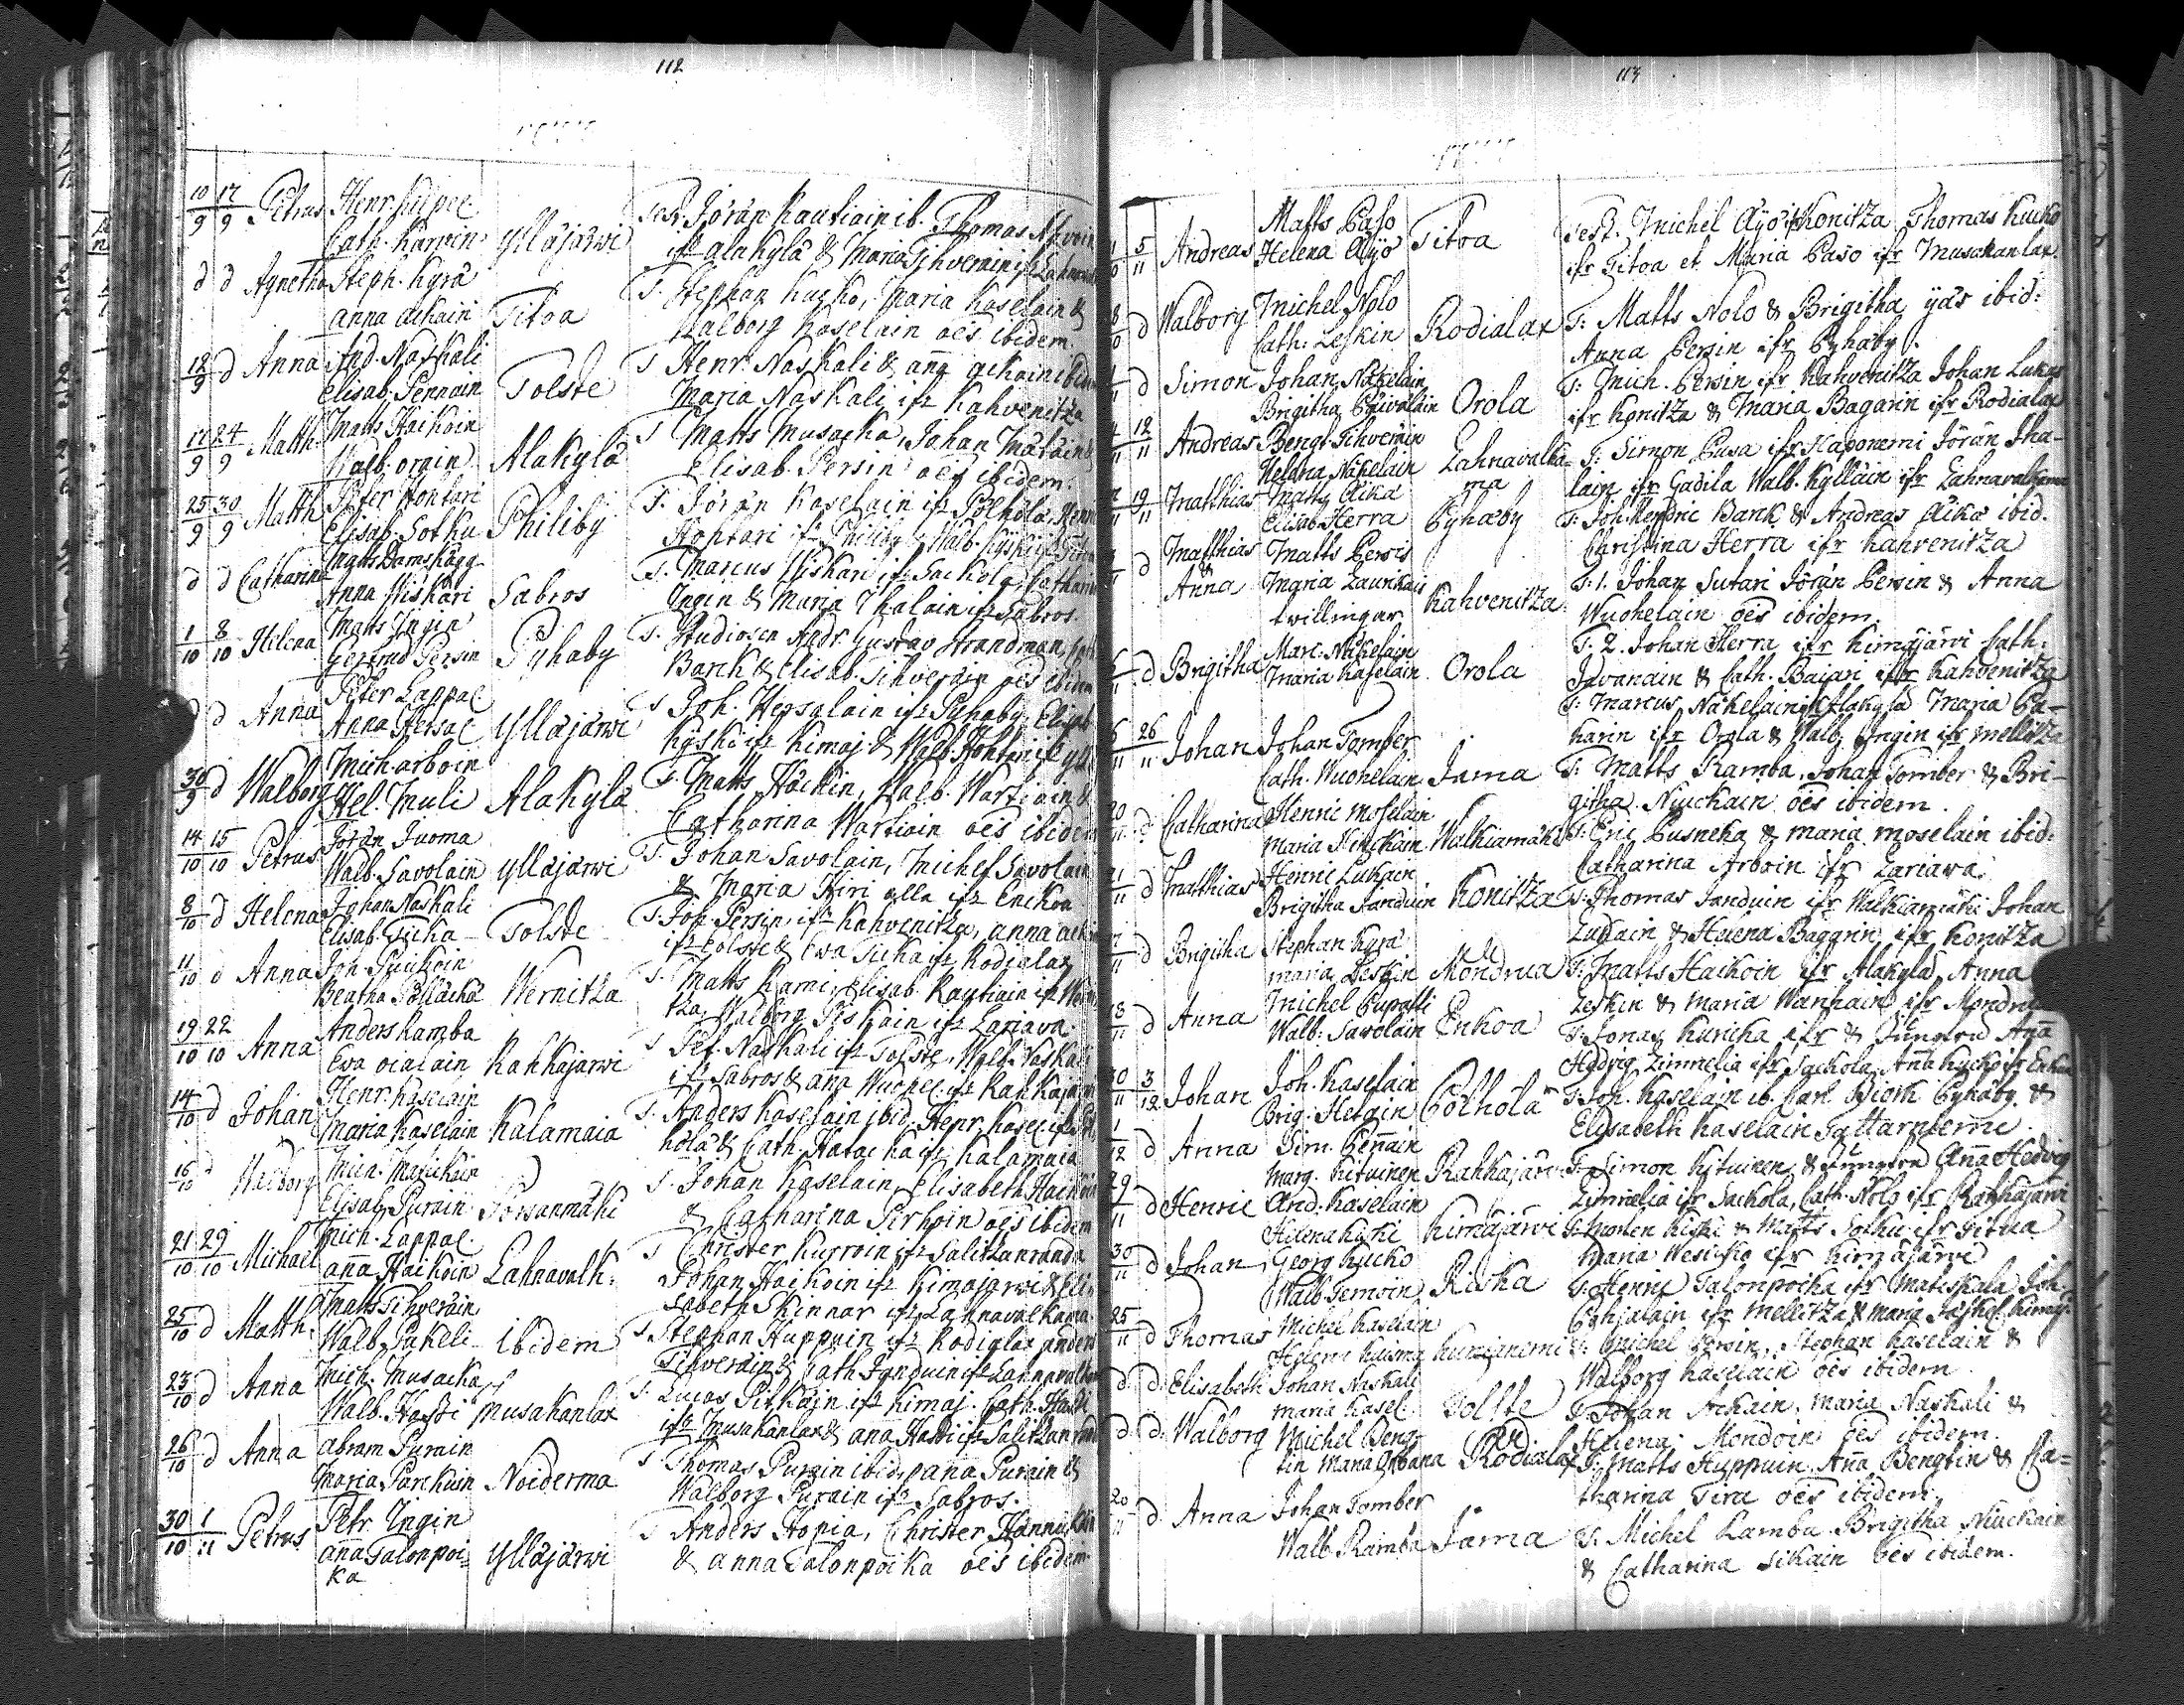 112
10/9 17/9 Petrus Henr. Culpee
Cath. Karvin Ylläjärwi Test. Jöran Rautiain ib. Thomas
ifr Alakylä & Maria Tihverain ifr
d d Agnetha Steph. Kyrä
Anna Ackain Titoa T. Stephan Kucko, Maria Kaselain &
Walborg Kaselain oes ibidem.
12/9 d Anna And. Naskali
Elisab. Pennain Tolste T Henr. Naskali & Anna Ackain ibidem
Maria Naskali ifr Kahvenitza
17/9 24/9 Matth. Matts Haikoin
Walb. orain Alakylä T Matts Musacka, Johan
Elisab. Persin oes ibidem.
25/9 30/9 Matth. Peter Hontari
Elisab. Sothu Philiby T. Jöran Kaselain ifr Pölhölä
Hontari ifr Philiby & Walb.
d d Catharina Matts Damskägg
Anna Hiskari Sabros T. Marcus Hiskari ifr Sackola, Catharina
Ingin & Maria Ihalain ifr Sabros.
1/10 8/10 Helena Matts Ingin
Gertrud Persin Pyhäby T. Studiosen Andr. Gustav Strandman,
Barck & Elisab. Tihverain oes ibidem
d Anna Peter Lappal
Anna Hersal Ylläjärwi T Joh. Hersalain ifr Pyhäby, Elisab.
Kyski ifr Kimaj. & Walb. Hontari ifr
30/9 d Walborg Mich. arboin
Hel. Muli Alakylä T. Matts Häckin, Walb. Wartiain &
Catharina Wartiain oes ibidem
14/10 15/10 Petrus Jöran Juoma
Walb. Savolain Ylläjärwi T. Johan Savolain, Michel Savolain
& Maria Hiri alla ifr Enckoa
8/10 d Helena Johan Naskali
Elisab. Ticka Tolste T. Joh. Persin ifr Kahvenitza, Anna
ifr Tolste & Ewa Ticka ifr Rodialax
11/10 d Anna Joh. Puckoin
Beatha Pölläckä Wernitza T. Matts Rami, Elisab. Rautiain ifr Werni-
tza, Walborg Piskain ifr Lariava
19/10 22/10 Anna Anders Ramba
Ewa oialain Rahkajärwi T Pet. Naskali ifr Tolste, Walb. Naskali
ifr Sabros & Anna Wuopel ifr Rahkajärwi
14/10 d Johan Henr. Kaselain
Maria Kaselain Kalamaia T. Anders Kaselain ibid. Henr. Kasel. ifr Pöl-
hölä & Cath. Hatacka ifr Kalamaia
16/10 d Walborg Mich. Matickain
Elisab. Purain Porsanmäki T. Johan Kaselain, Elisabeth Haikoin
& Catharina Pirhoin oes ibidem
21/10 29/10 Michael Mich. Lappal.
Anna Haikoin Lahnavalk: T Christer Kurvoin ifr Salitzanranda
Johan Haikoin ifr Kimajärwi & Eli-
sabeth Skinnar ifr Lahnavalkama.
25/10 d Matth. Matts Tihverain
Walb. Pukeli Ibidem T Stephan Huppuin ifr Rodialax Anders
Tihverain & Cath. Janduin ifr Lahnavalkama
23/10 d Anna Mich. Musacka
Walb. Hatti Musakanlax T. Lucas Pitkäin ifr Kimaj. Cath. Hatti
ifr Musakanlax & Ana Hatti ifr Salitzanranda
26/10 d Anna Abram Purain
Maria Parckuin Noiderma T Thomas Purain ibid, Anna Purain &
Walborg Purain ifr Sabros.
30/10 1/11 Petrus Petr. Ingin
Anna Talonpoi=
ka Ylläjärwi T Anders Hopia, Christer Hannukain
& Anna Talonpoika oes ibidem
113
5/11 Andreas Matts Paso
Helena Äyö Titoa Test. Michel Äyö ifr Konitza Thomas Kucko
ifr Titoa et Maria Paso ifr Musakanlax.
d Walborg Michel Nolo
Cath: Leskin Rodialax T: Matts Nolo & Brigitha yäs ibid:
Anna Persin ifr Pyhäby.
d Simon Johan Näkelain
Brigitha Päiväläin Orola T: Mich. Persin ifr Kahvenitza Johan Lukas
ifr Konitza & Maria Bagarin ifr Rodialax
12/11 Andreas Bengt Tihverain
Helena Näkelain Lahnavalka=
ma T: Simon Pusa ifr Haponiemi Jöran Iha-
lain ifr Gadila Walb. Kylläin ifr Lahnavalkama
19/11 Matthias Matts Äikä
Elisab. Herra Pyhäby T: Joh. Hendric Bank & Andreas Äikä ibid.
Christina Herra ifr Kahvenitza
d Matthias & Anna Matts Persis
Maria Launkais
twillingar Kahvenitza T: 1. Johan Sutari Jöran Persin & Anna
Wuohelain oes ibidem.
T: 2. Johan Herra ifr Kimajärvi Cath:
Ivanain & Cath. Baiari ifr Kahvenitza
d Brigitha Marc. Näkelain
Maria Kaselain Orola T: Marcus Näkelain ifr Alakylä Maria Pa-
karin ifr Orola & Walb. Ingin ifr Mellitza
26/11 Johan Johan Tomber
Cath. Wuohelain Jama T: Matts Ramba. Johan Tomber & Bri-
githa Niuckain oes ibidem.
20/11 d Catharina Henric Moselain
Maria Kinckain Walkiamäki T: Eric Pusneka & Maria Moselain ibid:
Catharina Arboin ifr Lariava.
21/11 d Matthias Henric Lukain
Brigitha Janduin Konitza T: Thomas Janduin ifr Walkiamäki Johan
Lukain & Helena Bagarin ifr Konitza
d Brigitha Stephan Kyrä
Maria Leskin Mondrua T: Matts Haikoin ifr Alakylä Anna
Leskin & Maria Wanhain ifr Mondrua
18/11 d Anna Michel Cupatti
Walb: Savolain Enkoa T: Jonas Kuricka ifr & Jungfru Anna
Hedvig Zimmelia ifr Sackola, Anna Kucko ifr Enkoa
30/11 3/12 Johan Joh. Kaselain
Brig. Hetain Pölhölä T: Joh. Kaselain ib. Carl Biörk Pyhäby &
Elisabeth Kaselain Tattarniemi.
1/12 d Anna Sim. Pennain
Marg. Kituinen Rahkajärvi T: Simon Kituinen & Jungfru Anna Hedvig
Zimmelia ifr Sackola, Cath. Nolo ifr Rahkajärvi
29/11 d Henric And. Kaselain
Helena Kiski Kimajärvi T: Morten Kiski & Matts Sothu ifr Titua
Maria Wesicko ifr Kimajärvi
30/11 d Johan Georg Kucko
Walb. Temoin Riiska T: Henric Talonpoika ifr Matiskala Joh.
Pohjalain ifr Mellitza & Maria Kimaj:
25/11 d Thomas Michel Kaselain
Helena Kuisma Kunianiemi T: Michel Persin, Stephan Kaselain &
Walborg Kaselain oes ibidem.
d. d. Elisabeth Johan Naskali
Maria Kasel. Tolste T: Johan Ackain, Maria Naskali &
Helena Mondoin oes ibidem.
d. d. Walborg Michel Beng-
tin Maria Orbana Rodialax T: Matts Huppuin. Anna Bengtin & Ca=
tharina Tira oes ibidem.
20/11 d Anna Johan Tomber
Walb. Ramba Jama T: Michel Ramba Brigitha Niuckain
& Catharina Sikain oes ibidem.